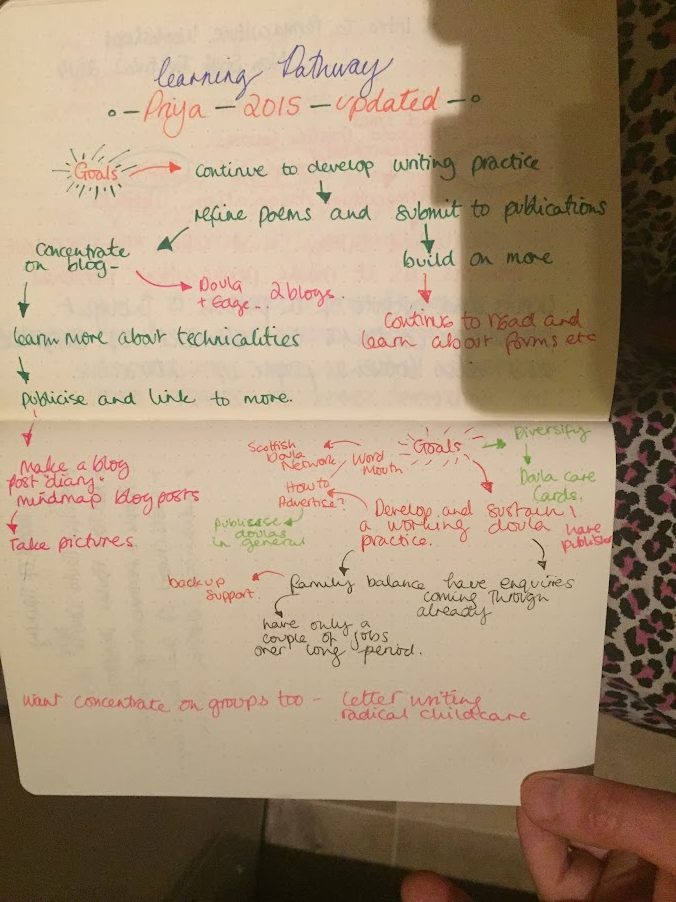 learning Pathway
Priya - 2015 - updated
Goals
continue to develop writing practice
refine poems and submit to publications
Concentrate
on blog -
build on more
Doula
+ Edge. 2 blogs
Continue to read and
learn about forms etc
learn more about technicalities
publicise and link to more.
Make a blog
post diary.
mindmap blog posts
Take pictures
Goals
Diversify
Doula care
Cards.
Scottish
Doula
Network
Word
Mouth
How to
Advertise?
Publicise
doulas
in general
Develop and sustain
a working doula
practice.
have
publish
backup
support.
family balance
have enquiries
coming through
already
have only a
couple of jobs
over long period.
Want concentrate on groups too - letter writing
radical childcare